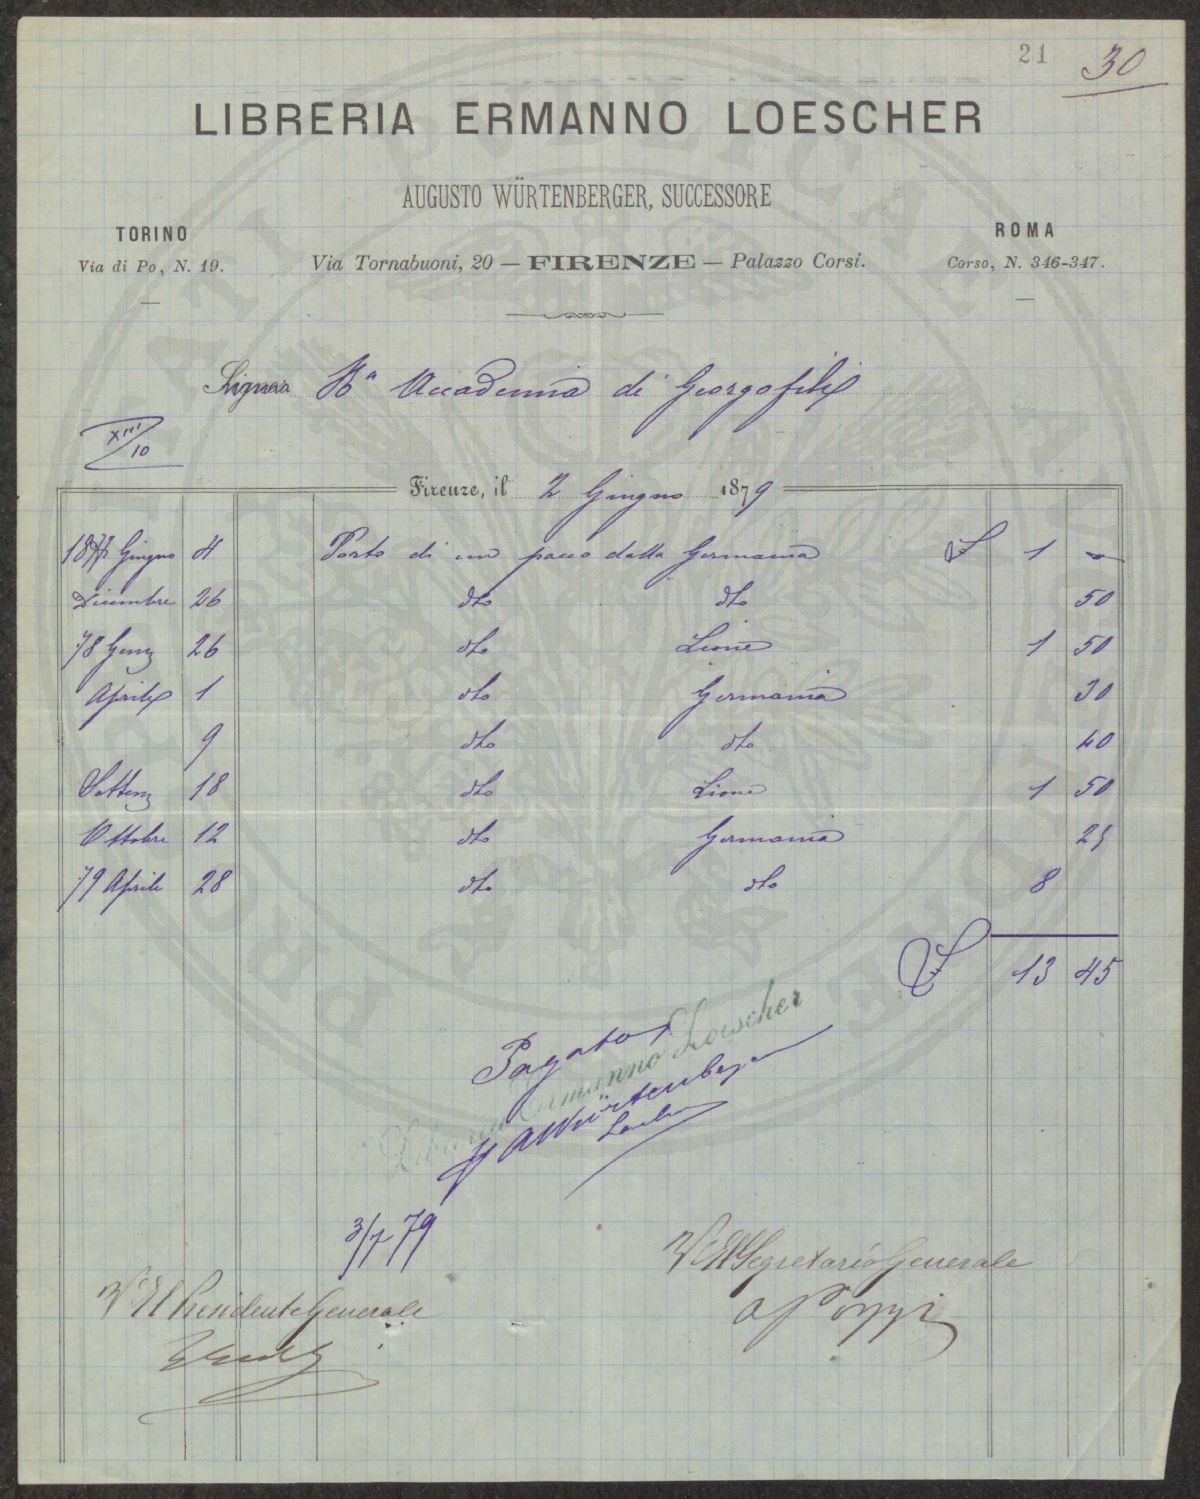 21 30
LIBRERIA ERMANNO LOESCHER
AUGUSTO WÜRTENBERGER, SUCCESSORE
TORINO ROMA
Via di Po, N. 19. Via Tornabuoni, 20 — FIRENZE — Palazzo Corsi. Corso, N. 346-347.
Rª Accademia di Georgofili
XIII/10
Firenze, il 2 Giugno 1879
1877 Giugno 4 Porto di un pacco dalla Germania £ 1 —
Dicembre 26 dto dto 50
78 Genn 26 dto Lione 1 50
Aprile 1 dto Germania 30
9 dto dto 40
Settem 18 dto Lione 1 50
Ottobre 12 dto Germania 25
79 Aprile 28 dto dto 8
£ 13 45
Pagato
Libreria Ermanno Loescher
A Würtenberger
3/7 79
Vº Il Segretario Generale
Vº Il Presidente Generale